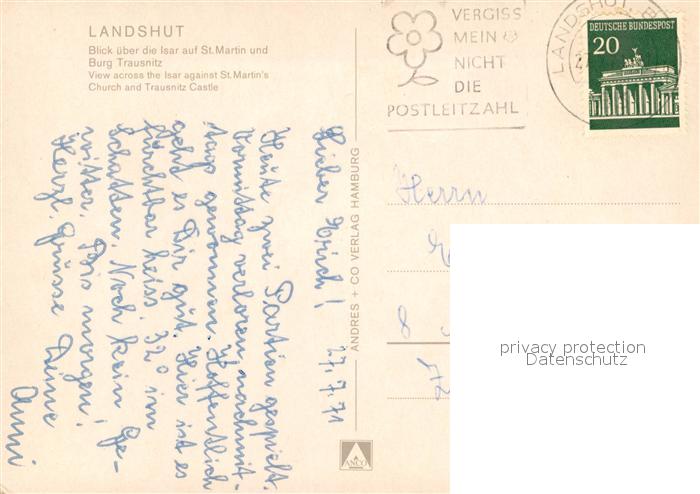 LANDSHUT
Blick über die Isar auf St. Martin und
Burg Trausnitz
View across the Isar against St. Martin's
Church and Trausnitz Castle
VERGISS
MEIN
NICHT
DIE
POSTLEITZAHL
LANDSHUT
DEUTSCHE BUNDESPOST
20
27.7.71
Lieber !
Heute zwei Partien gespielt.
Vormittag verloren, nachmit-
tags gewonnen. Hoffentlich
geht es Dir gut. Hier ist es
furchtbar heiss. 32° im
Schatten. Noch kein Ge-
witter. Bis morgen!
Herzl. Grüsse Deine
Anni
ANDRES + CO VERLAG HAMBURG
ANCO
Herrn
8
privacy protection
Datenschutz